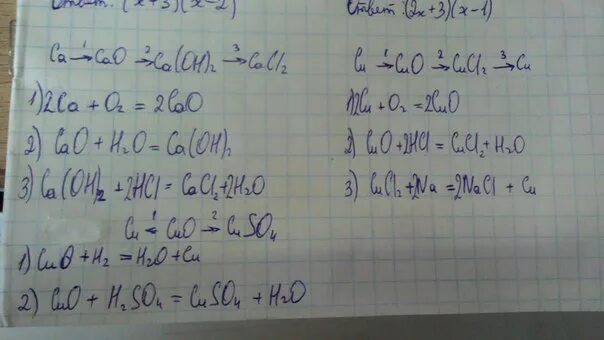 Ответ: (x+3)(x-2)
Ca →¹ CaO →² Ca(OH)₂ →³ CaCl₂
1) 2Ca + O₂ = 2CaO
2) CaO + H₂O = Ca(OH)₂
3) Ca(OH)₂ + 2HCl = CaCl₂ + 2H₂O
Cu ←¹ CuO →² CuSO₄
1) CuO + H₂ = H₂O + Cu
2) CuO + H₂SO₄ = CuSO₄ + H₂O
Ответ: (2x+3)(x-1)
Cu →¹ CuO →² CuCl₂ →³ Cu
1) 2Cu + O₂ = 2CuO
2) CuO + 2HCl = CuCl₂ + H₂O
3) CuCl₂ + 2Na = 2NaCl + Cu